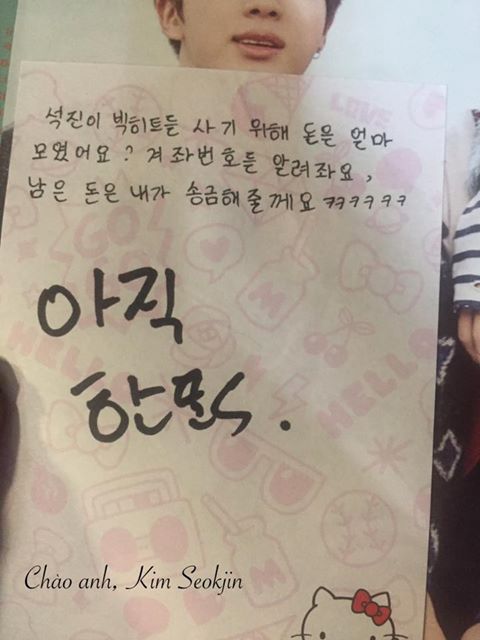 석진이 빅히트를 사기 위해 돈은 얼마
모였어요? 겨좌번호를 알려좌요,
남은 돈은 내가 송금해줄께요 ㅋㅋㅋㅋㅋㅋ
아직
한푼.
LOVE
GO
HELLO
HELLO
Chào anh, Kim Seokjin